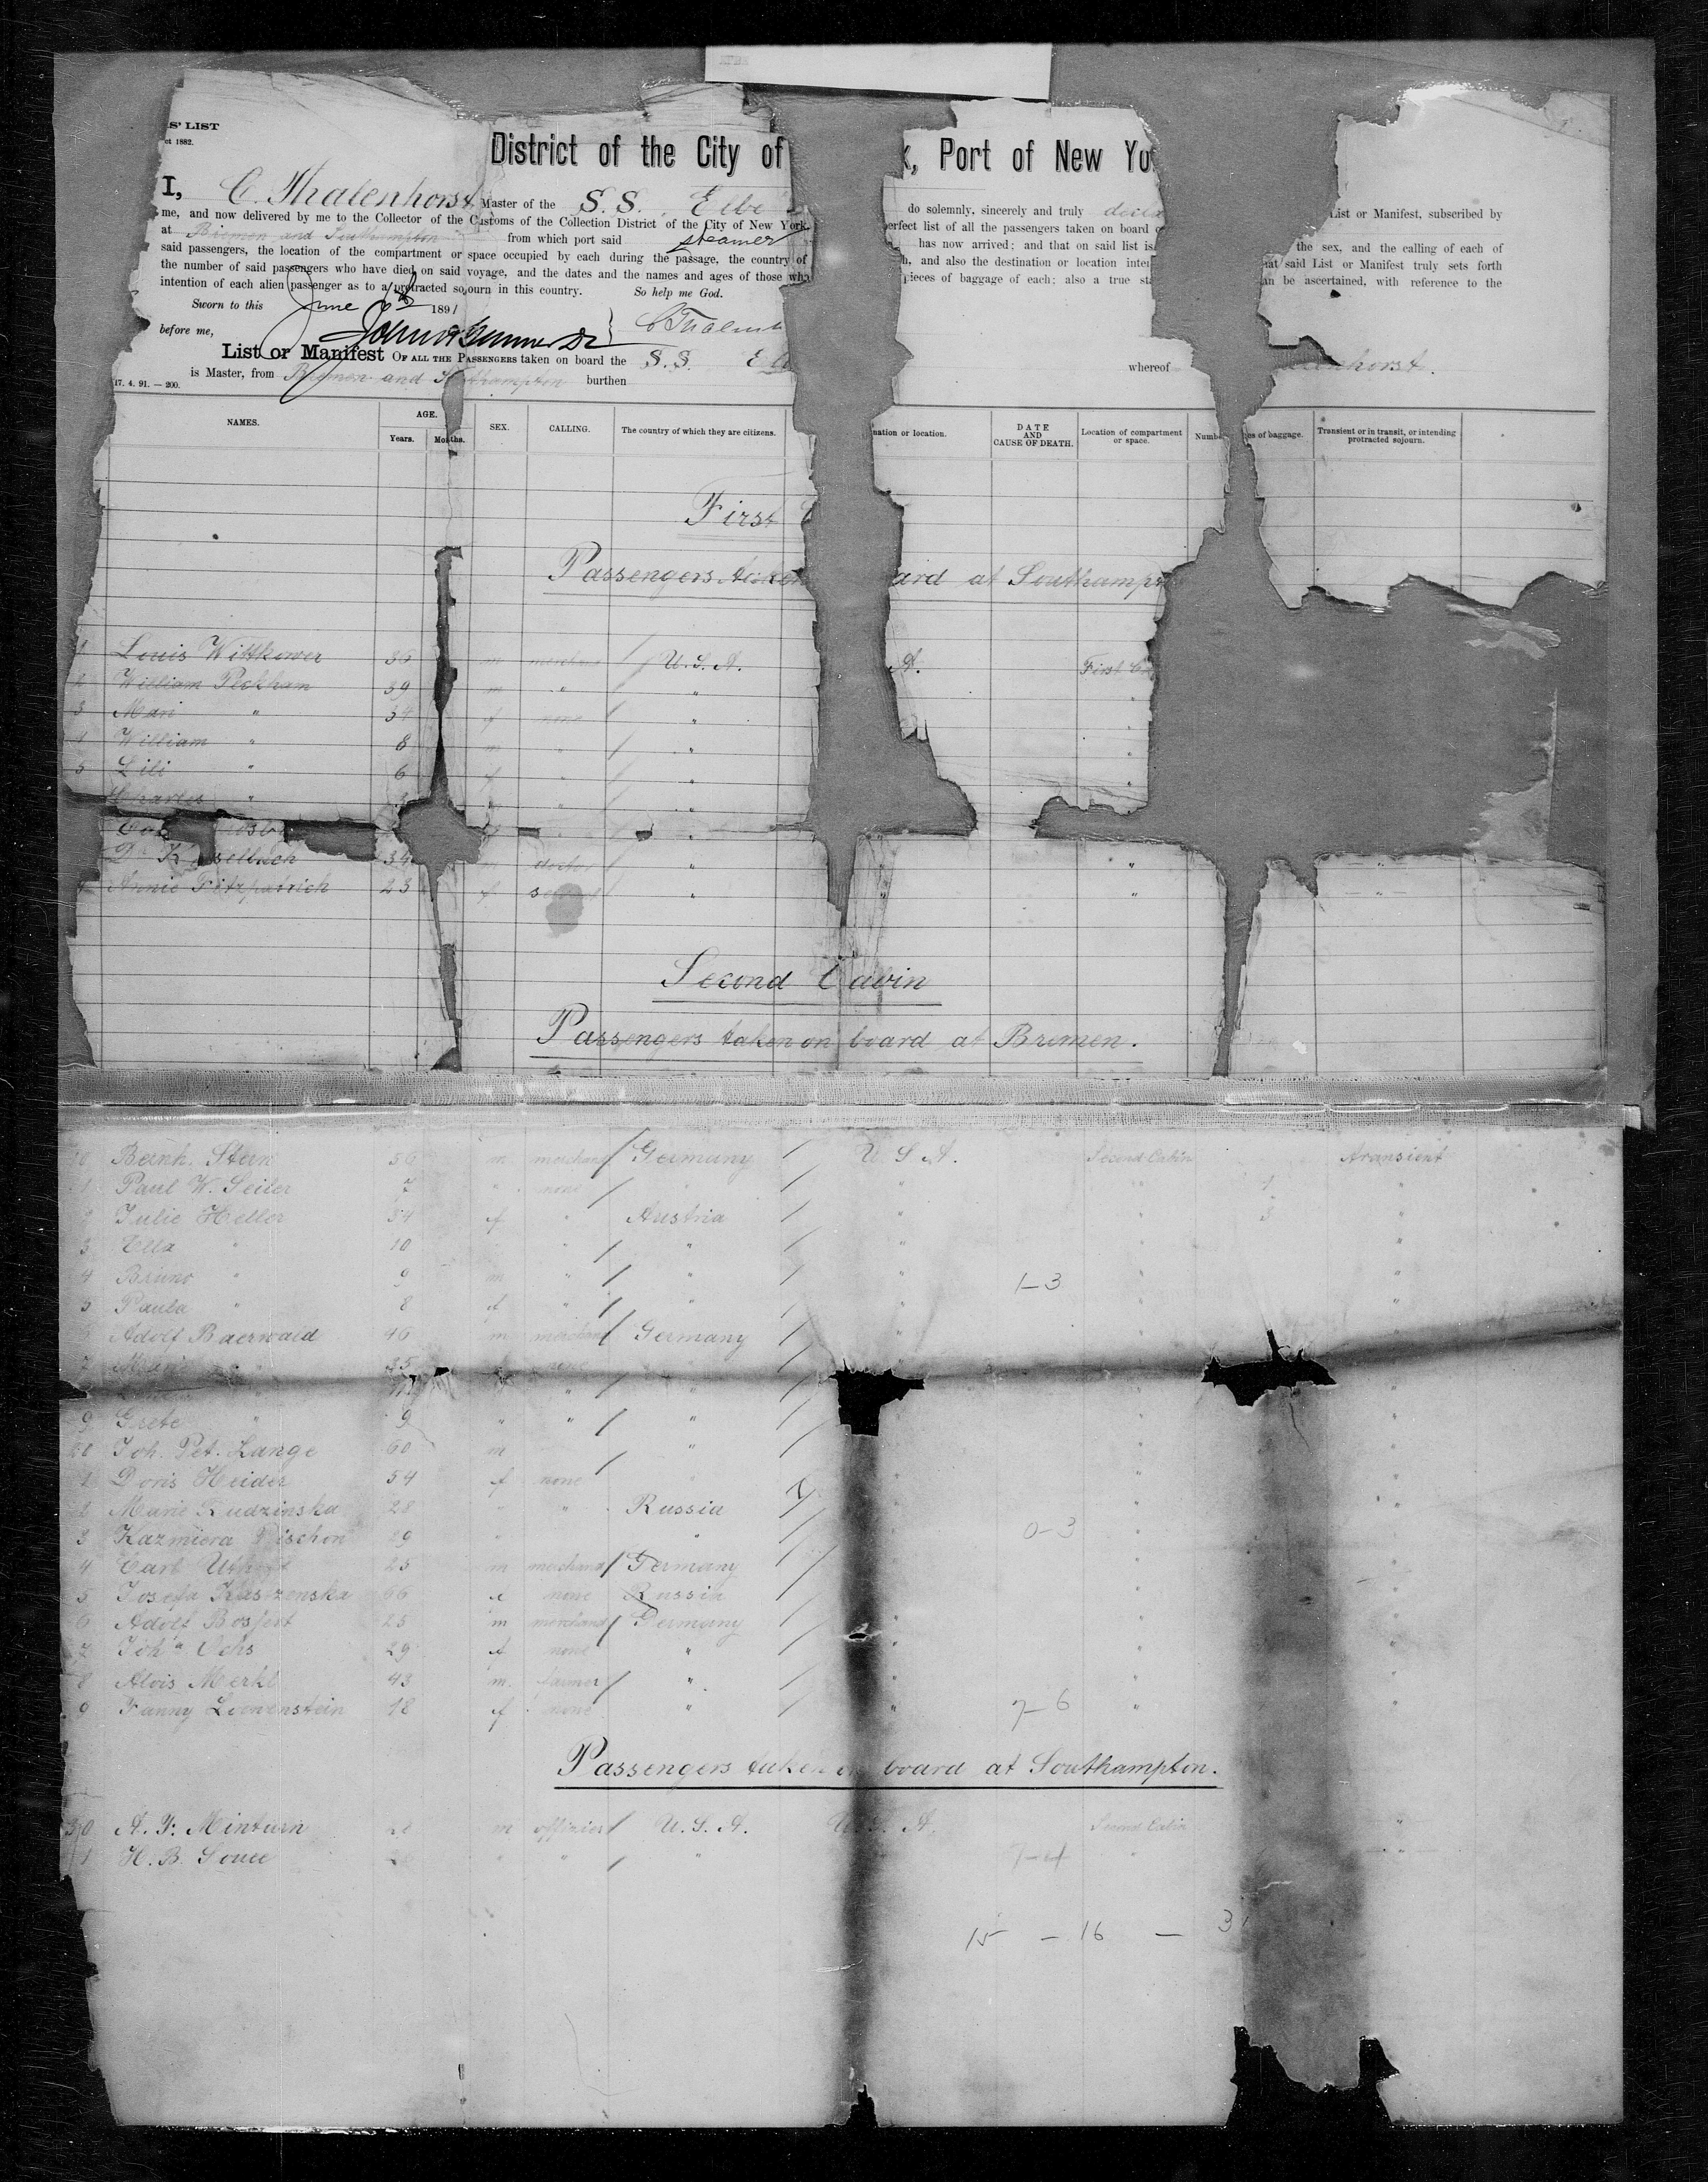 S' LIST
ct 1882.
District of the City of k, Port of New Yo
I, C. Thalenhorst Master of the S. S. Elbe do solemnly, sincerely and truly List or Manifest, subscribed by
me, and now delivered by me to the Collector of the Customs of the Collection District of the City of New York, perfect list of all the passengers taken on board
at Bremen and Southampton from which port said steamer has now arrived; and that on said list is the sex, and the calling of each of
said passengers, the location of the compartment or space occupied by each during the passage, the country of and also the destination or location inten that said List or Manifest truly sets forth
the number of said passengers who have died on said voyage, and the dates and the names and ages of those who pieces of baggage of each; also a true sta an be ascertained, with reference to the
intention of each alien passenger as to a protracted sojourn in this country. So help me God.
Sworn to this June 6th 1891
before me,
List or Manifest OF ALL THE PASSENGERS taken on board the S. S. whereof
is Master, from Bremen and Southampton burthen
17. 4. 91. — 200.
NAMES. AGE. Years. Months. SEX. CALLING. The country of which they are citizens. nation or location. DATE AND CAUSE OF DEATH. Location of compartment or space. Numbe es of baggage. Transient or in transit, or intending protracted sojourn.
First
Passengers taken ard at Southampt
1 Louis Wittkower 36 m U.S.A. A. First
2 William Peckham 39 m " " "
3 Mari " 34 f none " "
4 William " 8 m " " "
5 Lili " 6 f " " "
Charles " " "
34 doctor " " " "
Annie Fitzpatrich 23 f " " " "
Second Cabin
Passengers taken on board at Bremen.
10 Bernh. Stern 56 m merchant Germany U. S A. Second Cabin transient
1 Paul W. Seiler 7 " none " " " 1 "
2 Julie Heller 34 f " Austria " " 3 "
3 Ella " 10 " " " " "
4 Bruno " 9 m " " " 1-3 " "
5 Paula " 8 f " " " " "
6 Adolf Baerwald 46 m merchant Germany " " "
7 35 none
" " " "
9 Grete " 9 " " " " " "
20 Joh. Pet. Lange 60 m " " "
1 Doris Heider 54 f none " " "
2 Marie Rudzinska 28 " " Russia " "
3 Kazmiera 29 " " 0-3 " "
4 Carl 25 m merchant Germany " "
5 Josefa Kaszenska 66 f none Russia " "
6 Adolf Bossert 25 m merchant Germany " " "
7 Joh'a Ochs 29 f none " " " "
8 Alois Merkl 43 m. farmer " " " "
9 Fanny Loewenstein 18 f none " " 7-6 " "
Passengers taken on board at Southampton.
30 A. F. Minturn m offizier U. S. A. U. S. A. Second Cabin "
1 H. B. " " " "
15 - 16 - 31